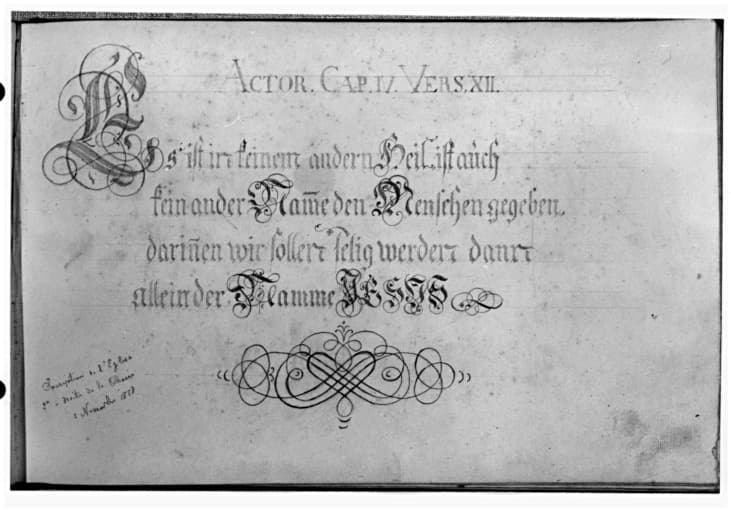 ACTOR. CAP. IV. VERS. XII.
Es ist in keinem andern Heil, ist auch
kein ander Nam̅e den Menschen gegeben,
darin̅en wir sollen selig werden dann
allein der Namme JESUS
Inscription de l'Eglise
2 Novembre